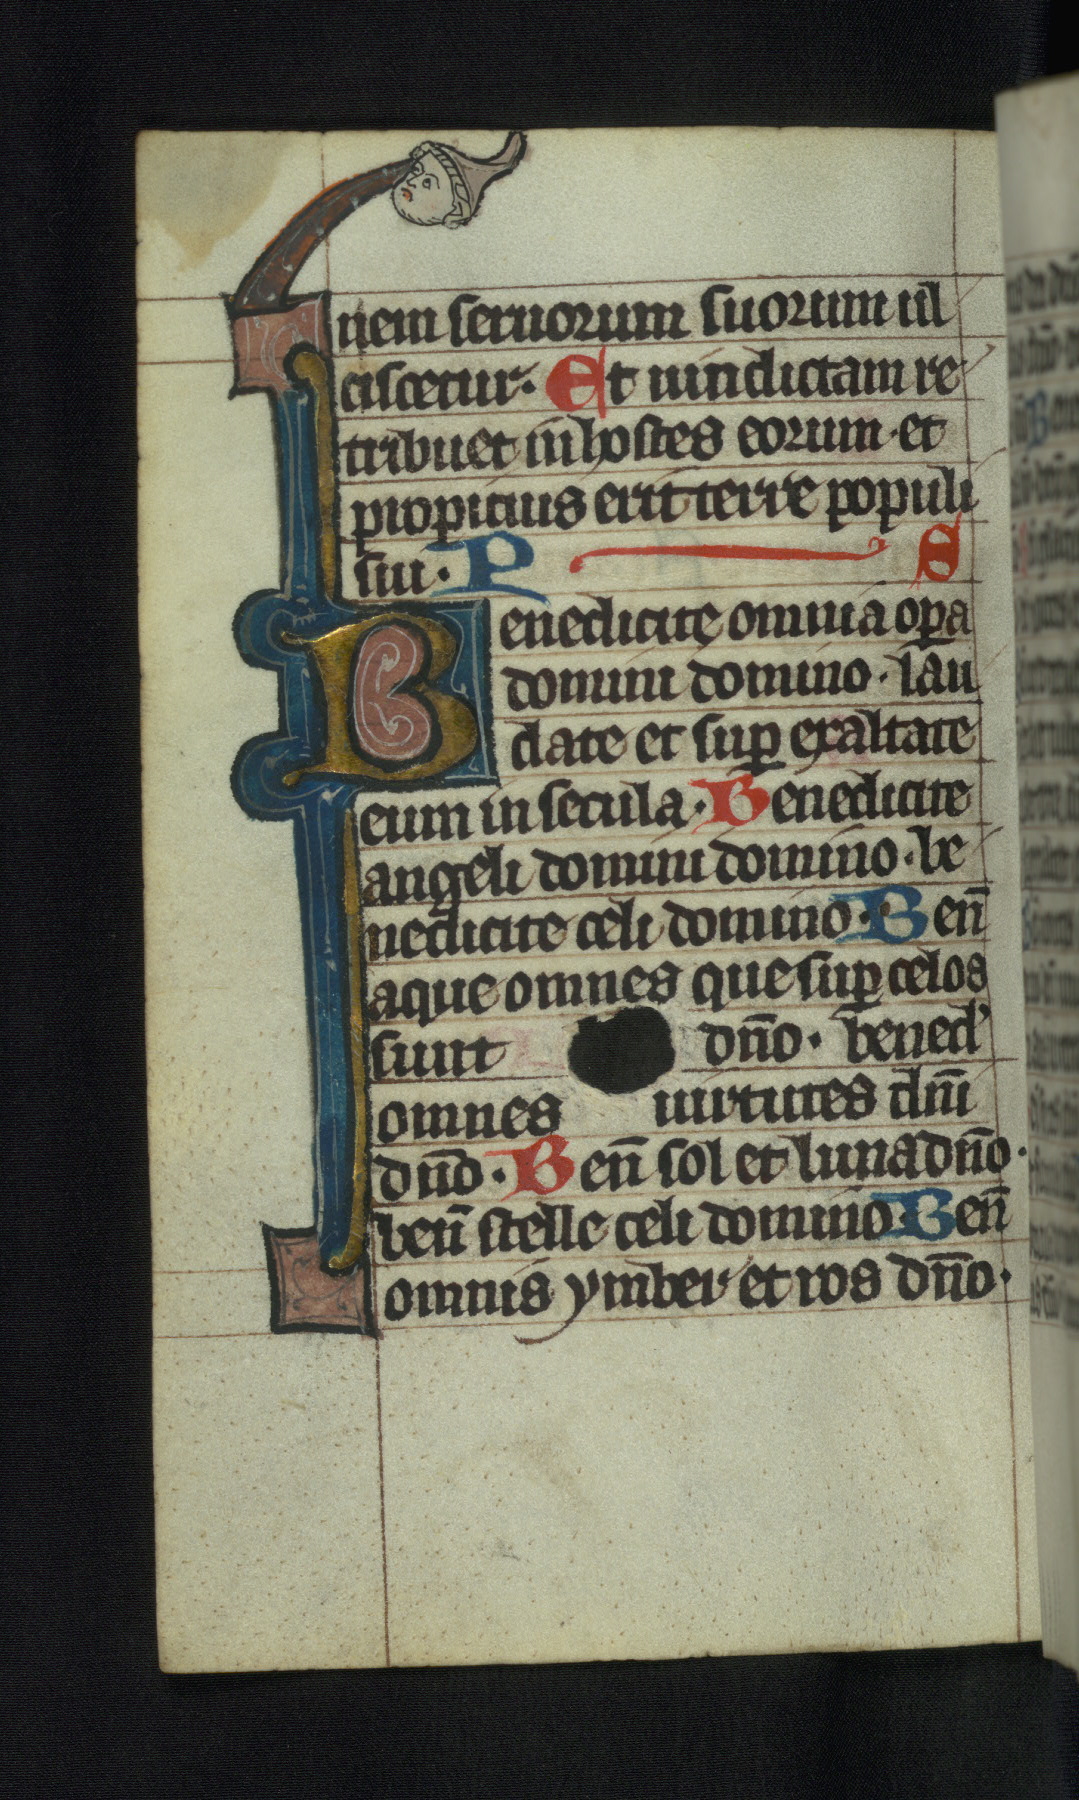 nem seruorum suorum ul
ciscetur· Et uindictam re
tribuet in hostes eorum· et
propicius erit terre populi
sui· P S
Benedicite omnia op̱a
domini domino· lau
date et sup̱ exaltate
eum in secula· Benedicite
angeli domini domino· be
nedicite celi domino· Ben̄
aque omnes que sup̱ celos
sunt dn̄o· bened'
omnes uirtutes dn̄i
dn̄o· Ben̄ sol et luna dn̄o·
ben̄ stelle celi domino· Ben̄
omnis ymber et ros dn̄o·